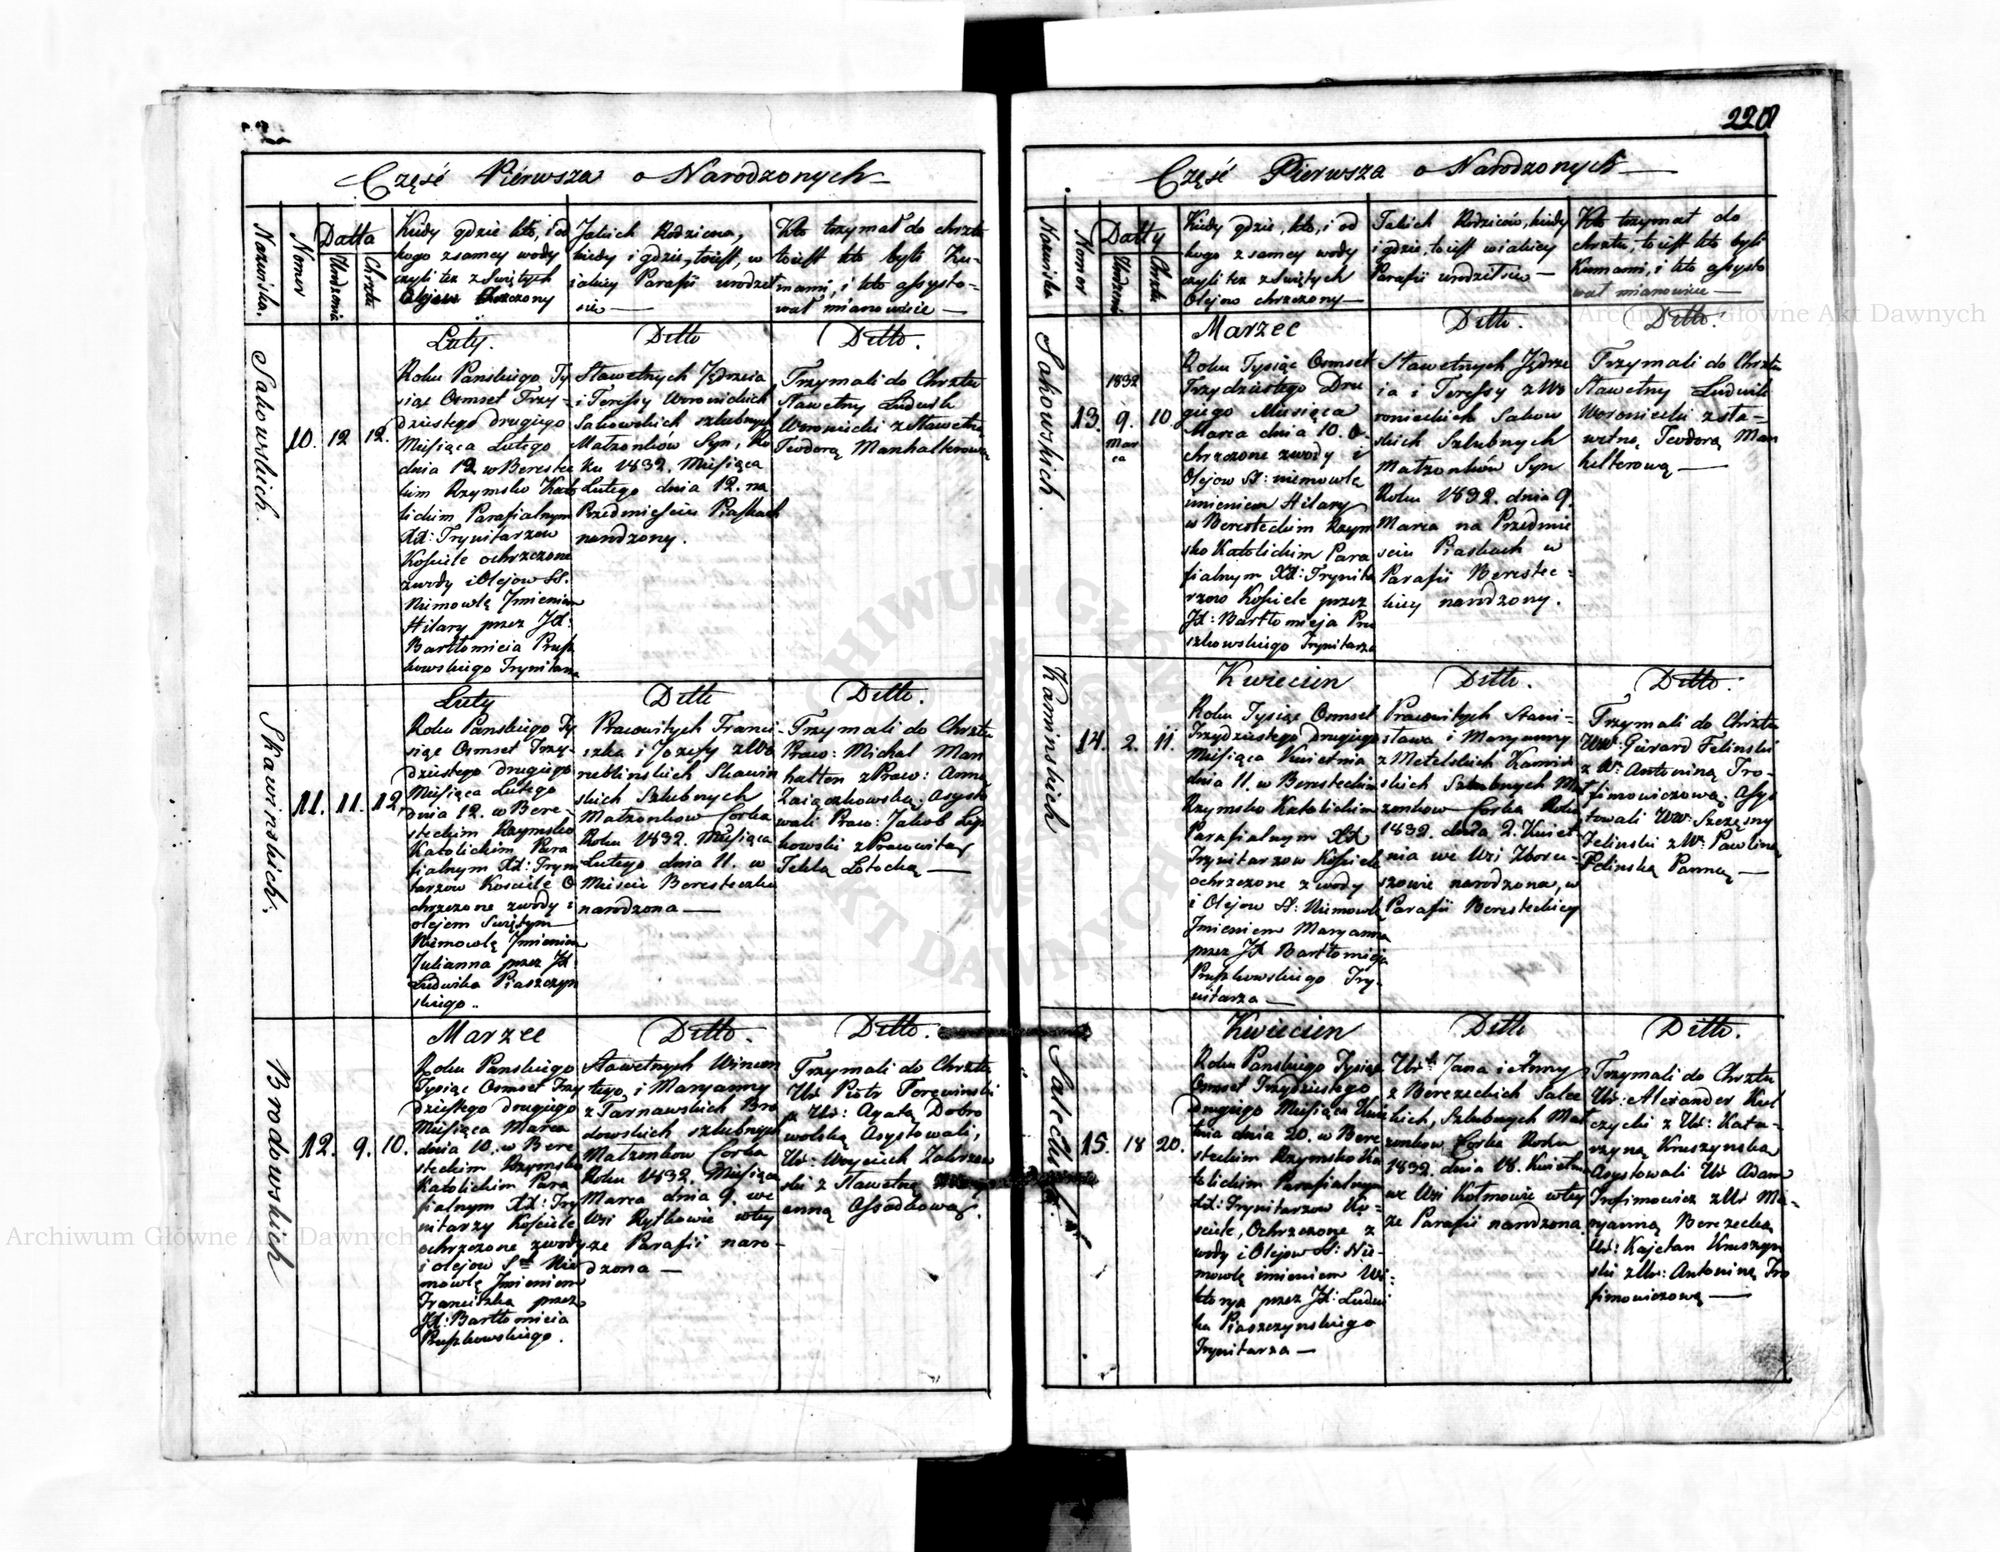 220
Część Pierwsza o Narodzonych
Nazwiska.
Nomer
Datta
Urodzenia
Chrztu
Kiedy gdzie kto, i od
kogo z samey wody
czyli tez z Swiętych
Olejow chrzczony
Jakich Rodzicow,
kiedy i gdzie, to iest, w
iakiey Parafii urodzeł
sie —
Kto trzymał do chrztu
to iest kto byli Ku-
mami, i kto assysto-
wał mianowicie —
Sakowskich.
10. 12 12.
Luty.
Roku Panskiego Ty
siąc Osmset Trzy-
dziestego drugiego
Miesiąca Lutego
dnia 12. w Bereste
kim Rzymsko Kato
lickim Parafialnym
XX: Trynitarzow
Kosciele ochrzczone
zwody i Olejow SS.
Niemowlę Jmieniem
Hilary przez JX.
Bartłomieia Prusz
kowskiego Trynitarza
Ditto
Sławetnych Jędrzeia
i Teressy Woronickich
Sakowskich szlubnych
Małzonkow Syn, Ro
ku 1832. Miesiąca
Lutego dnia 12. na
Przedmiesciu Piaskach
narodzony.
Ditto.
Trzymali do Chrztu
Sławetny Ludwik
Woroniecki z Sławetną
Teodorą Manhalterową
Skawinskich.
11. 11. 12.
Luty
Roku Panskiego Ty
siąc Osmset Trzy-
dziestego drugiego
Miesiąca Lutego
dnia 12. w Bere-
steckim Rzymsko
Katolickim Para
fialnym XX: Tryni
tarzow Kosciele O
chrzczone zwody i
olejem Swiętym
Niemowlę Jmieniem
Julianna przez JX.
Ludwika Piaszczyn
skiego..
Ditto
Prawowitych Franci-
szka i Jozefy z Wo
neblinskich Skawin
skich Szlubnych
Małzonkow Corka
Roku 1832. Miesiąca
Lutego dnia 11. w
Miescie Beresteczku
narodzona —
Ditto.
Trzymali do Chrztu
Praw: Michał Man
halter z Praw: Anną
Zaiączkowską. Asysto
wali Praw: Jakob Lip
kowski z Prawowitą
Teklą Łotocką —
Brodowskich
12. 9. 10.
Marzec
Roku Panskiego
Tysiąc Osmset Trzy
dziestego drugiego
Miesiąca Marca
dnia 10. w Bere
steckim Rzymsko
Katolickim Para
fialnym XX: Try
nitarzy Kosciele
ochrzczone zwody
i olejow S Nie
mowlę Jmieniem
Franciszka przez
JX: Bartłomieia
Pruszkowskiego.
Ditto.
Sławetnych Wincen
tego, i Maryanny
z Tarnawskich Bro
dowskich szlubnych
Małzonkow Corka
Roku 1832. Miesiąca
Marca dnia 9. we
Wsi Rytkowie wtey
ze Parafii naro-
dzona —
Ditto.
Trzymali do Chrztu
Ur Piotr
z Ur: Agatą Dobro
wolską Asystowali,
Ur: Woyciech
ski z Sławetną
anną
Część Pierwsza o Narodzonych —
Nazwiska
Nomer
Datty
Urodzenia
Chrztu
Kiedy gdzie, kto, i od
kogo z samey wody
czyli tez z Swiętych
Olejow chrzczony —
Jakich Rodzicow, kiedy
i gdzie, to iest w iakiey
Parafii urodzełsie —
Kto trzymał do
chrztu, to iest kto byli
Kumami, i kto assysto
wał mianowicie —
Sakowskich.
1832
13. 9. 10.
Mar
ca
Marzec
Roku Tysiąc Osmset
Trzydziestego Dru
giego Miesiąca
Marca dnia 10. O-
chrzczone zwody i
Olejow SS: niemowlę
imieniem Hilary
w Beresteckim Rzym
sko Katolickim Para
fialnym XX: Trynita
rzow Kosciele przez
JX: Bartłomieja Pru
szkowskiego Trynitarza
Ditto.
Sławetnych Jędrze
ia i Teressy z Wo
ronieckich Sakow
skich Szlubnych
Małzonków Syn
Roku 1832. dnia 9.
Marca na Przedmie
sciu Piaskach w
Parafii Berestec-
kiey narodzony.
Ditto.
Trzymali do Chrztu
Sławetny Ludwik
Woroniecki z Sła-
wetną Teodorą Man
helterową —
Kaminskich
14. 2. 11.
Kwiecien
Roku Tysiąc Osmset
Trzydziestego drugiego
Miesiąca Kwietnia
dnia 11. w Beresteckim
Rzymsko Katolickim
Parafialnym XX
Trynitarzow Kosciele
ochrzczone z wody
i Olejow SS: Niemowlę
Jmieniem Maryanna
przez JX Bartłomieja
Pruszkowskiego Try-
nitarza —
Ditto.
Prawowitych Stani-
sława i Maryanny
z Metelskich Kamin
skich Szlubnych Mał
zonkow Corka Roku
1832. dnia 2. Kwiet
nia we Wsi Zboru-
szowie narodzona, w
Parafii Beresteckiey
Ditto.
Trzymali do Chrztu
Wr: Gerard Felinski
z Wr: Antoniną Tro-
fimowiczową. Asys
towali Wr: Szczęsny
Felinski z Wr: Pawliną
Felinską Panną —
Saleckich
15. 18 20.
Kwiecien
Roku Panskiego Tysiąc
Osmset Trzydziestego
drugiego Miesiąca Kwie
tnia dnia 20. w Bere
steckim Rzymsko Ka
tolickim Parafialnym
XX: Trynitarzow Ko-
sciele, Ochrzczone z
wody i Olejow SS: Nie-
mowlę imieniem Wi-
ktorya przez JX: Ludwi
ka Piaszczynskiego
Trynitarza —
Ditto
Ur Jana i Anny
z Berezeckich Salec
kich, Szlubnych Mał
zonkow Corka Roku
1832. dnia 18. Kwietnia
we Wsi Kołmowie wtey
ze Parafii narodzona
Ditto.
Trzymali do Chrztu
Ur: Alexander Kieł
czycki z Ur: Kata-
rzyną Kruszynską
Asystowali Ur Adam
Trofimowicz z Ur Ma-
ryanną Berezecką,
Ur: Kajetan Kruszyn
ski z Ur: Antoniną Tro
fimowiczową —
Archiwum Główne Akt Dawnych
Archiwum Główne Akt Dawnych
ARCHIWUM GŁÓWNE
AKT DAWNYCH